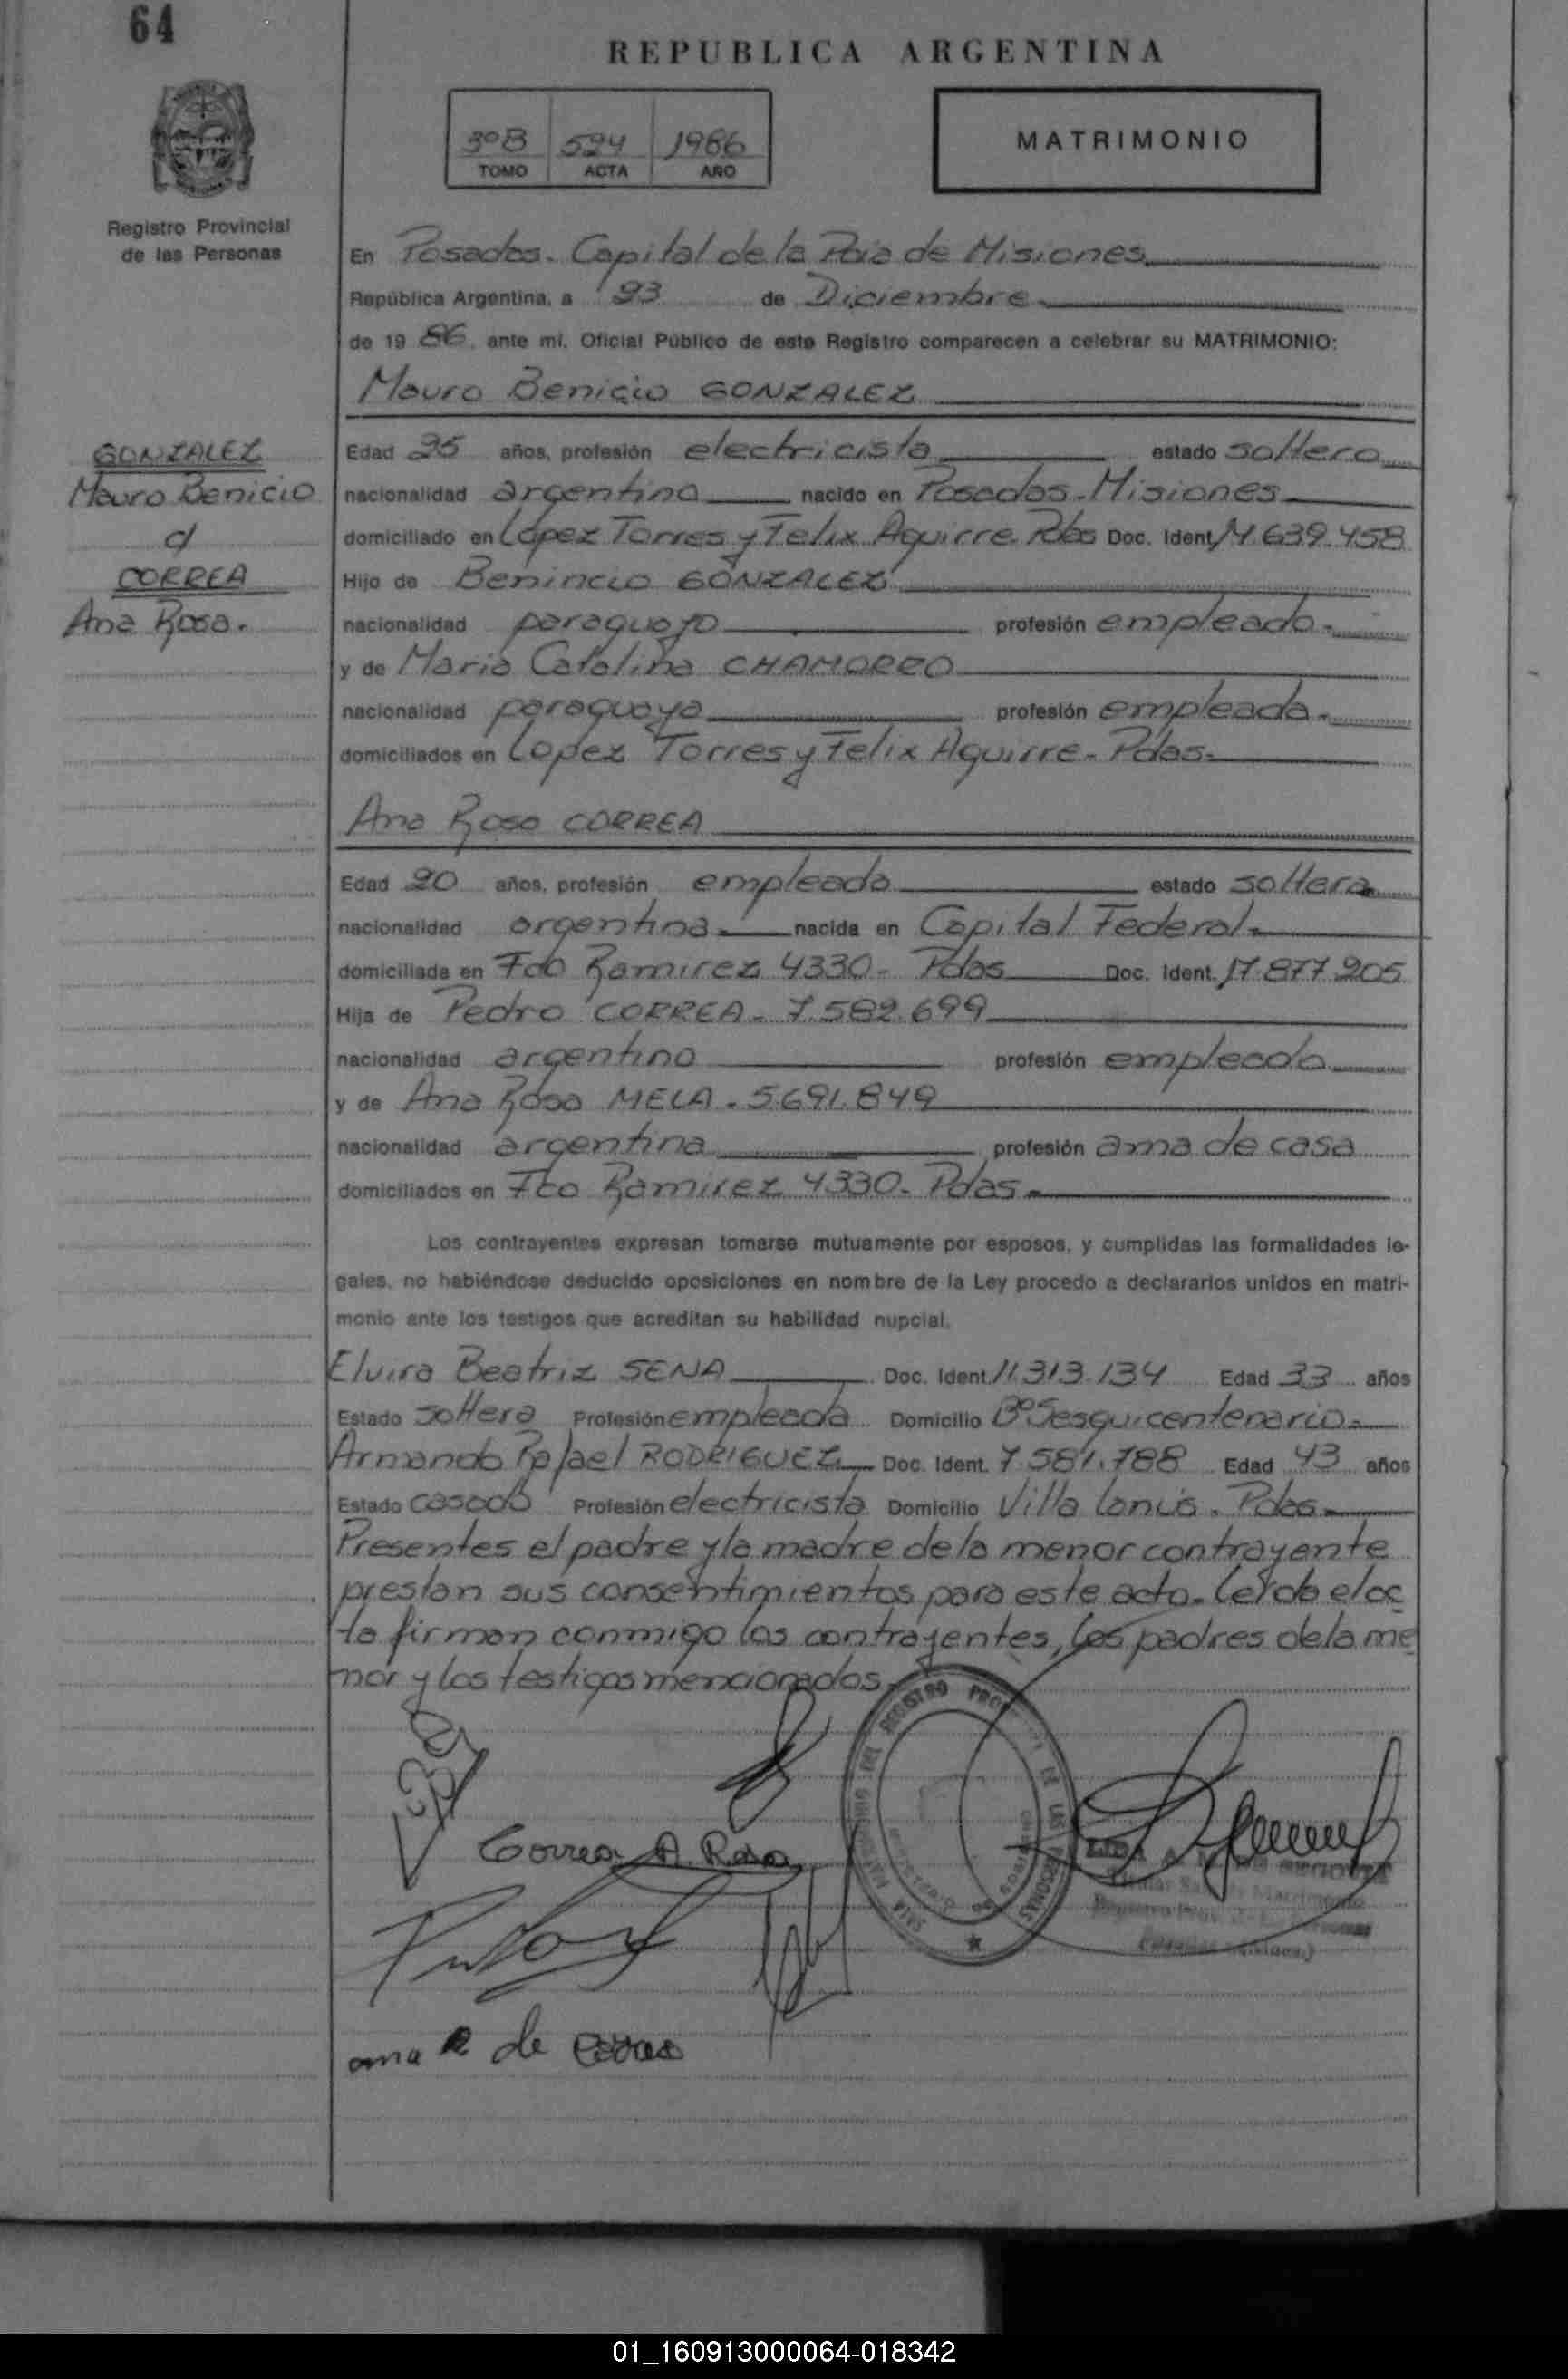 64
REPUBLICA ARGENTINA
3ºB 594 1986
TOMO ACTA AÑO
MATRIMONIO
Registro Provincial
de las Personas
En Posadas. Capital de la Pcia de Misiones
República Argentina, a 23 de Diciembre
de 19 86 ante mí, Oficial Público de este Registro comparecen a celebrar su MATRIMONIO:
Mauro Benicio GONZALEZ
GONZALEZ
Mauro Benicio
c/
CORREA
Ana Rosa.
Edad 25 años, profesión electricista estado soltero
nacionalidad argentino nacido en Posadas-Misiones
domiciliado en López Torres y Felix Aguirre. Pdas Doc. Ident. 14.639.458
Hijo de Benincio GONZALEZ
nacionalidad paraguayo profesión empleado.
y de Maria Catalina CHAMORRO
nacionalidad paraguaya profesión empleada.
domiciliados en Lopez Torres y Felix Aguirre- Pdas.
Ana Rosa CORREA
Edad 20 años, profesión empleada estado soltera
nacionalidad argentina nacida en Capital Federal.
domiciliada en Fco Ramirez 4330- Pdas Doc. Ident. 17.877.205
Hija de Pedro CORREA- 7.582.699
nacionalidad argentino profesión empleado
y de Ana Rosa MELA. 5.691.849
nacionalidad argentina profesión ama de casa
domiciliados en Fco Ramirez 4330. Pdas.
Los contrayentes expresan tomarse mutuamente por esposos, y cumplidas las formalidades le-
gales, no habiéndose deducido oposiciones en nombre de la Ley procedo a declararlos unidos en matri-
monio ante los testigos que acreditan su habilidad nupcial.
Elvira Beatriz SENA Doc. Ident. 11.313.134 Edad 33 años
Estado soltera Profesión empleada Domicilio Bº Sesquicentenario.
Armando Rafael RODRIGUEZ Doc. Ident. 7.581.788 Edad 43 años
Estado casado Profesión electricista Domicilio Villa Lanús. Pdas.
Presentes el padre y la madre de la menor contrayente
prestan sus consentimientos para este acto. Leído el ac
ta firman conmigo los contrayentes, los padres de la me
nor y los testigos mencionados.
Correa A. Rosa
ana R de
01_160913000064-018342